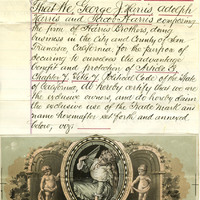 That We, George J. Harris, Adolph
Harris and Jacob Harris composing
the firm of Harris Brothers, doing
business in the City and County of San
Francisco, California, for the purpose of
securing to ourselves the advantage
benefit and protection of Article 3,
Chapter 7, Title 7 Political Code of the State
of California, do hereby certify that we are
the exclusive owners, and do hereby claim
the exclusive use of the Trade Mark and
name hereinafter set forth and annexed
below, viz: